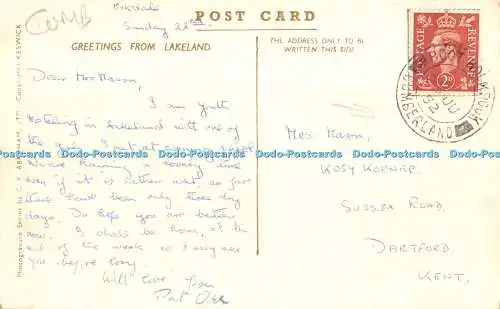 CUMB
Eskdale
Sunday 22nd.
POST CARD
GREETINGS FROM LAKELAND
THE ADDRESS ONLY TO BE
WRITTEN THIS SIDE
Dear Mrs Mason,
I am youth
hostelling in Lakeland with one of
the girls I met at
We are having a lovely time
even if it is rather wet so far
there have been only three dry
days. Do hope you are better
now. I shall be home at the
end of the week so I may see
you before long.
With love from
Pat
Mrs Mason,
KOSY KORNER,
SUSSEX ROAD,
DARTFORD,
KENT.
POSTAGE REVENUE
2D
HOLMROOK
CUMBERLAND
Photogravure Series by G. P. ABRAHAM, LTD. Copyright, KESWICK
Dodo-Postcards Dodo-Postcards Dodo-Postcards Dodo-Postcards Dodo-Postcards Dodo-Postcards
Dodo-Postcards Dodo-Postcards Dodo-Postcards Dodo-Postcards Dodo-Postcards Dodo-Postcards